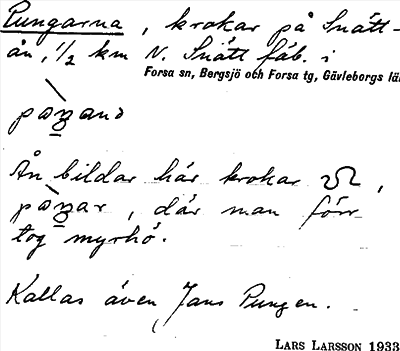 Pungarna, krokar på Snätt-
ån, 1/2 km N. Snätt fäb. i
Forsa sn, Bergsjö och Forsa tg, Gävleborgs lä
Ån bildar här krokar
, där man förr
tog myrhö.
Kallas även Jans Pungen.
LARS LARSSON 1933